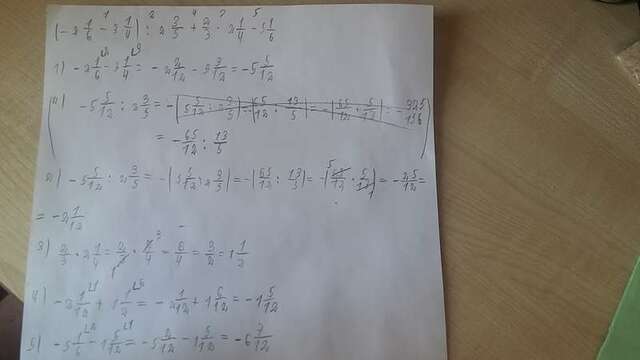 (-2 1/6 - 3 1/4) : 2 3/5 + 2/3 · 2 1/4 - 5 1/6
1) -2 1/6 - 3 1/4 = -2 2/12 - 3 3/12 = -5 5/12
2) -5 5/12 : 2 3/5 = -|5 5/12 : 2 3/5| = -|65/12 : 13/5| = -|65/12 · 5/13| = -325/156
= -65/12 : 13/5
2) -5 5/12 : 2 3/5 = -|5 5/12 : 2 3/5| = -|65/12 : 13/5| = -|65/12 · 5/13| = -25/12 =
= -2 1/12
3) 2/3 · 2 1/4 = 2/3 · 9/4 = 6/4 = 3/2 = 1 1/2
4) -2 1/12 + 1 1/2 = -2 1/12 + 1 6/12 = -1 5/12
5) -5 1/6 - 1 5/12 = -5 2/12 - 1 5/12 = -6 7/12